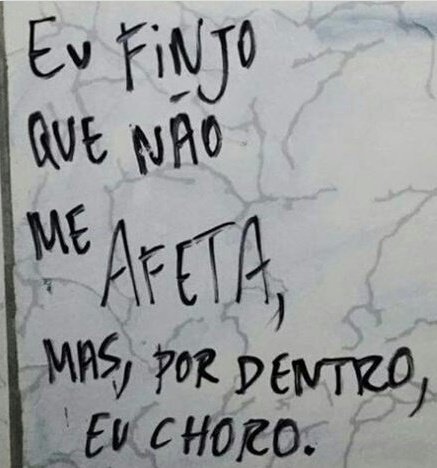 EU FINJO
QUE NÃO
ME AFETA,
MAS, POR DENTRO,
EU CHORO.